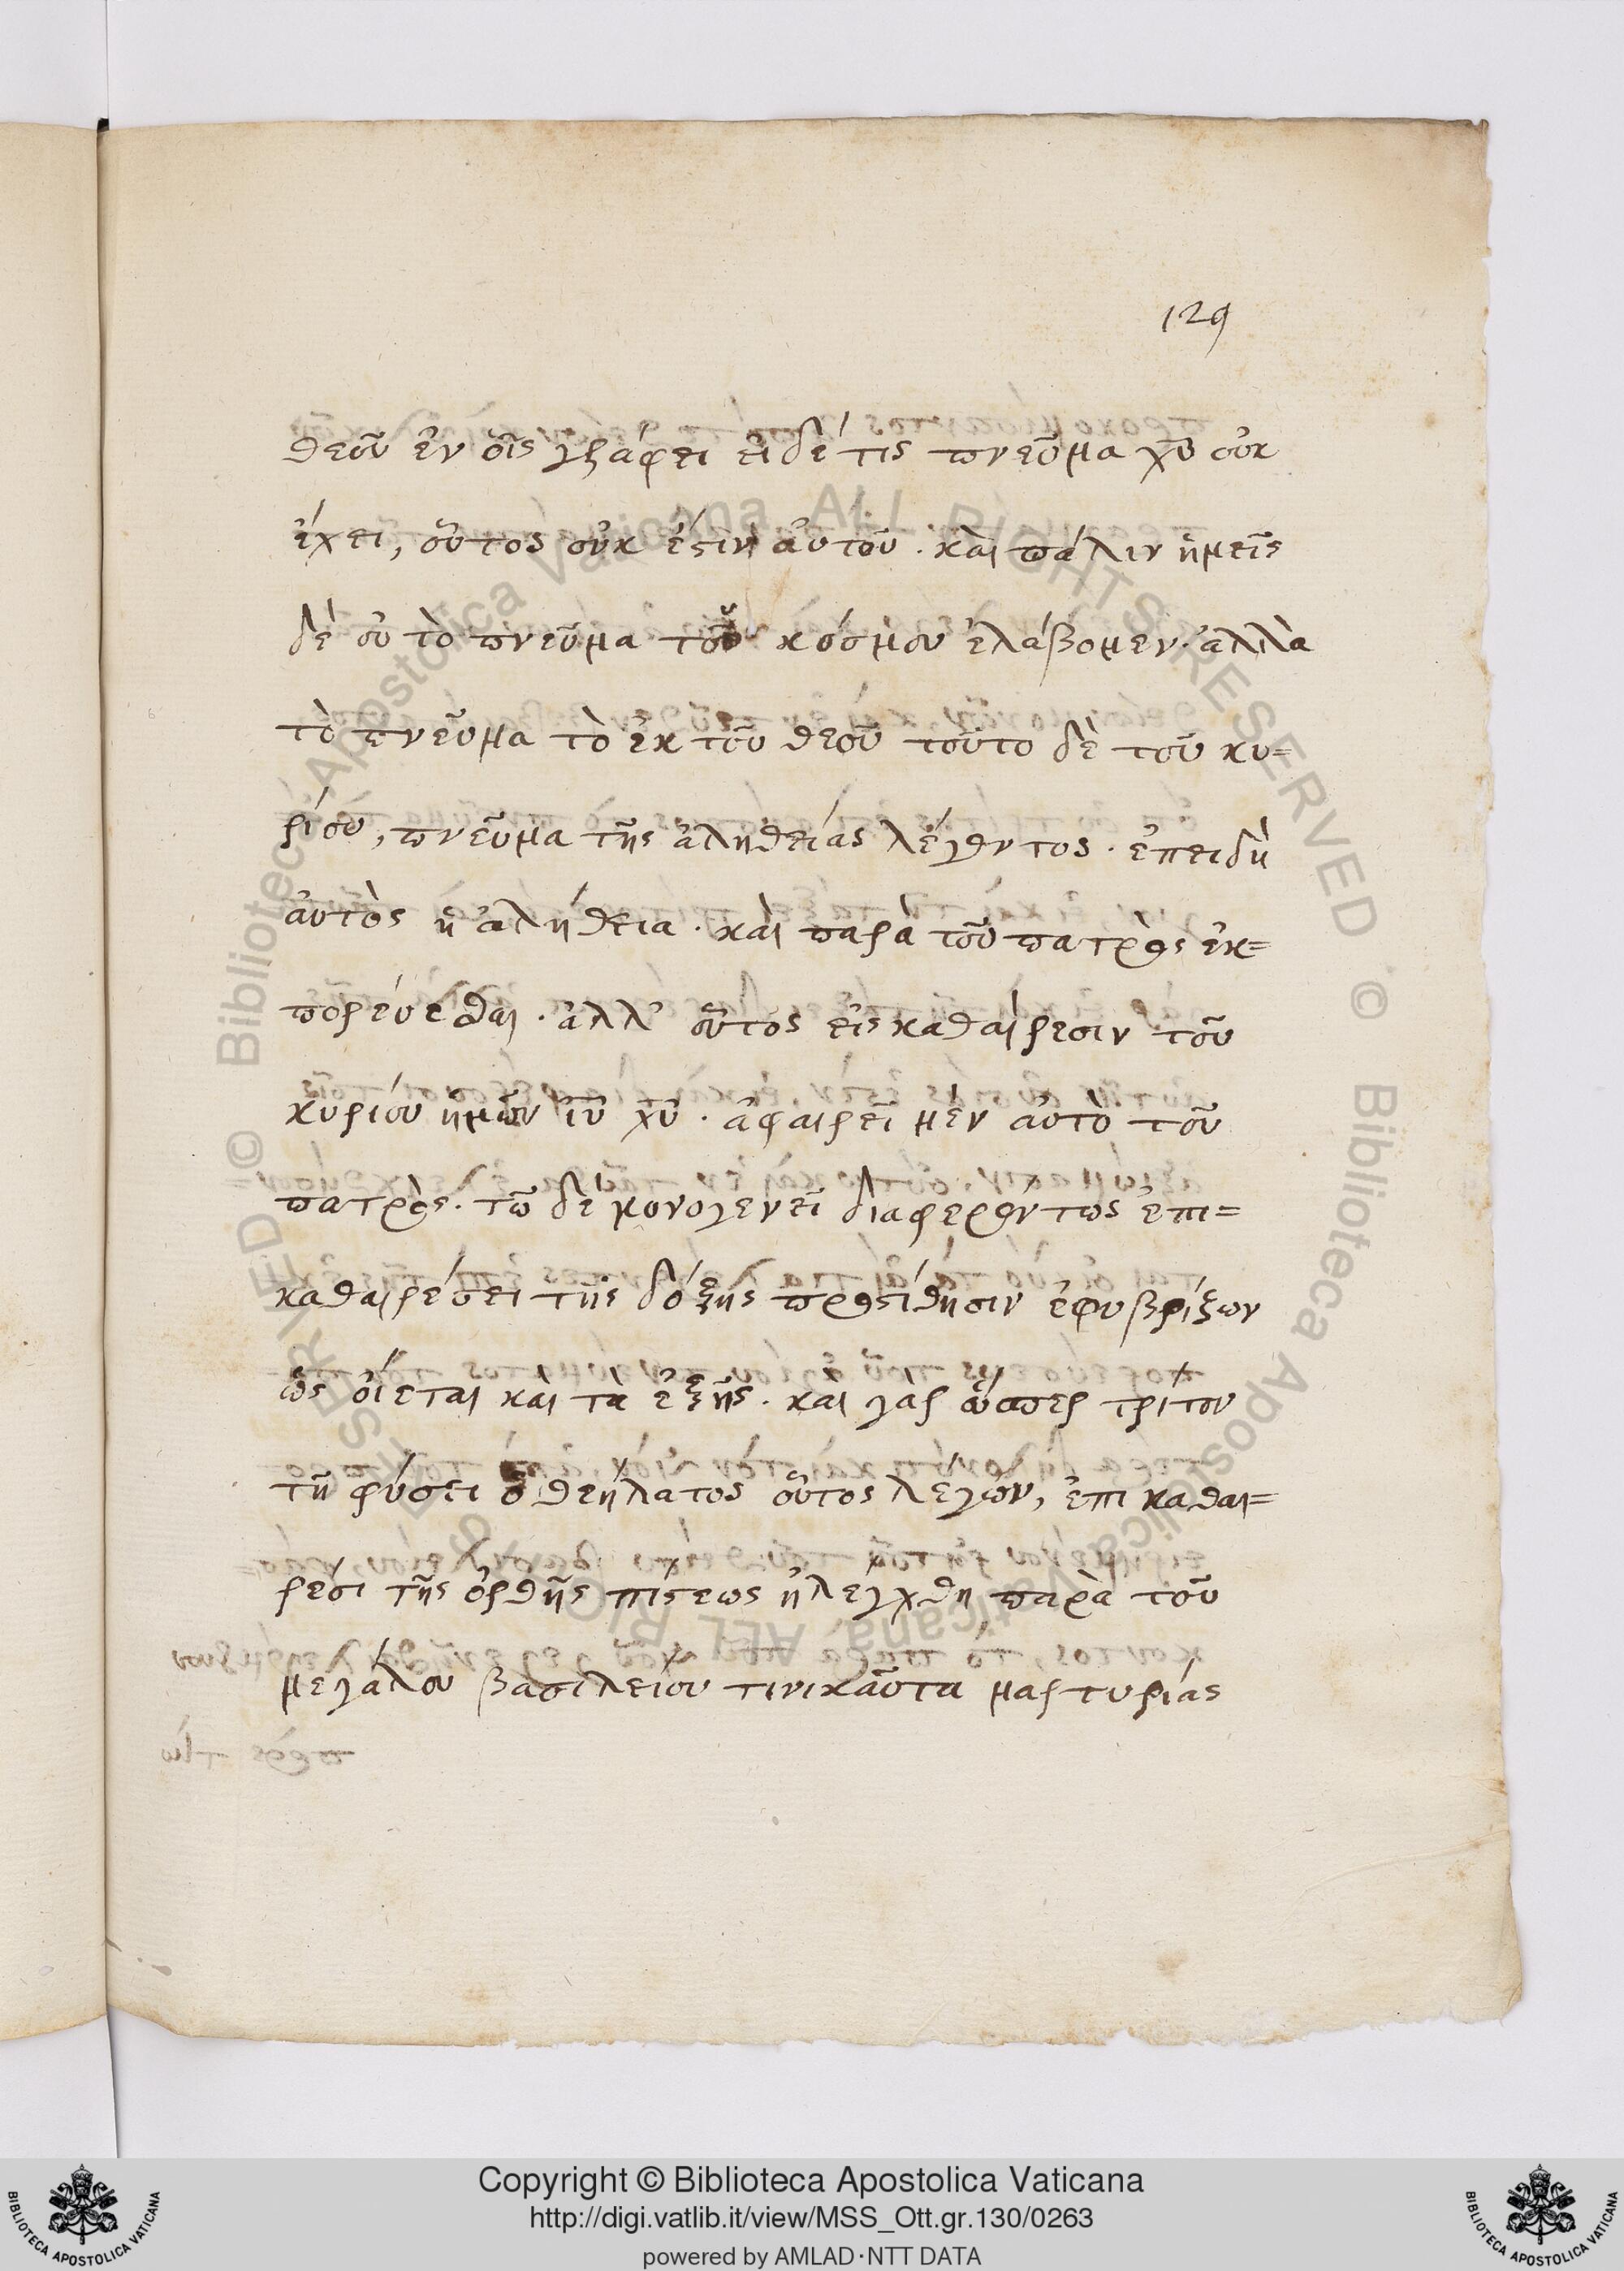 129
θεοῦ ἐν οἷς γράφει εἰ δέ τις πνεῦμα χυ οὐκ
ἔχει, οὗτος οὐκ ἔστιν αὐτοῦ. καὶ πάλιν ἡμεῖς
δὲ οὐ τὸ πνεῦμα τοῦ κόσμου ἐλάβομεν. ἀλλὰ
τὸ πνεῦμα τὸ ἐκ τοῦ θεοῦ τοῦτο δὲ τοῦ κυ=
ρίου, πνεῦμα τῆς ἀληθείας λέγοντος. ἐπειδὴ
αὐτὸς ἡ ἀλήθεια. καὶ παρὰ τοῦ πατρὸς ἐκ=
πορεύεσθαι. ἀλλ' οὗτος εἰς καθαίρεσιν τοῦ
κυρίου ἡμῶν ιυ χυ. ἀφαιρεῖ μὲν αὐτὸ τοῦ
πατρὸς. τῶ δὲ μονογενεῖ διαφερόντως ἐπι=
καθαιρέσει τῆς δόξης προστίθησιν ἐφυβρίζων
ὡς οἴεται καὶ τὰ ἑξῆς. καὶ γὰρ ὥσπερ τρίτον
τῇ φύσει ὁ θεήλατος οὗτος λέγων, ἐπι καθαι=
ρέσι τῆς ὀρθῆς πίστεως ἠλέγχθη παρὰ τοῦ
μεγάλου βασιλείου τινικαῦτα μαρτυρίας
Copyright © Biblioteca Apostolica Vaticana
http://digi.vatlib.it/view/MSS_Ott.gr.130/0263
powered by AMLAD·NTT DATA
BIBLIOTECA APOSTOLICA VATICANA
BIBLIOTECA APOSTOLICA VATICANA